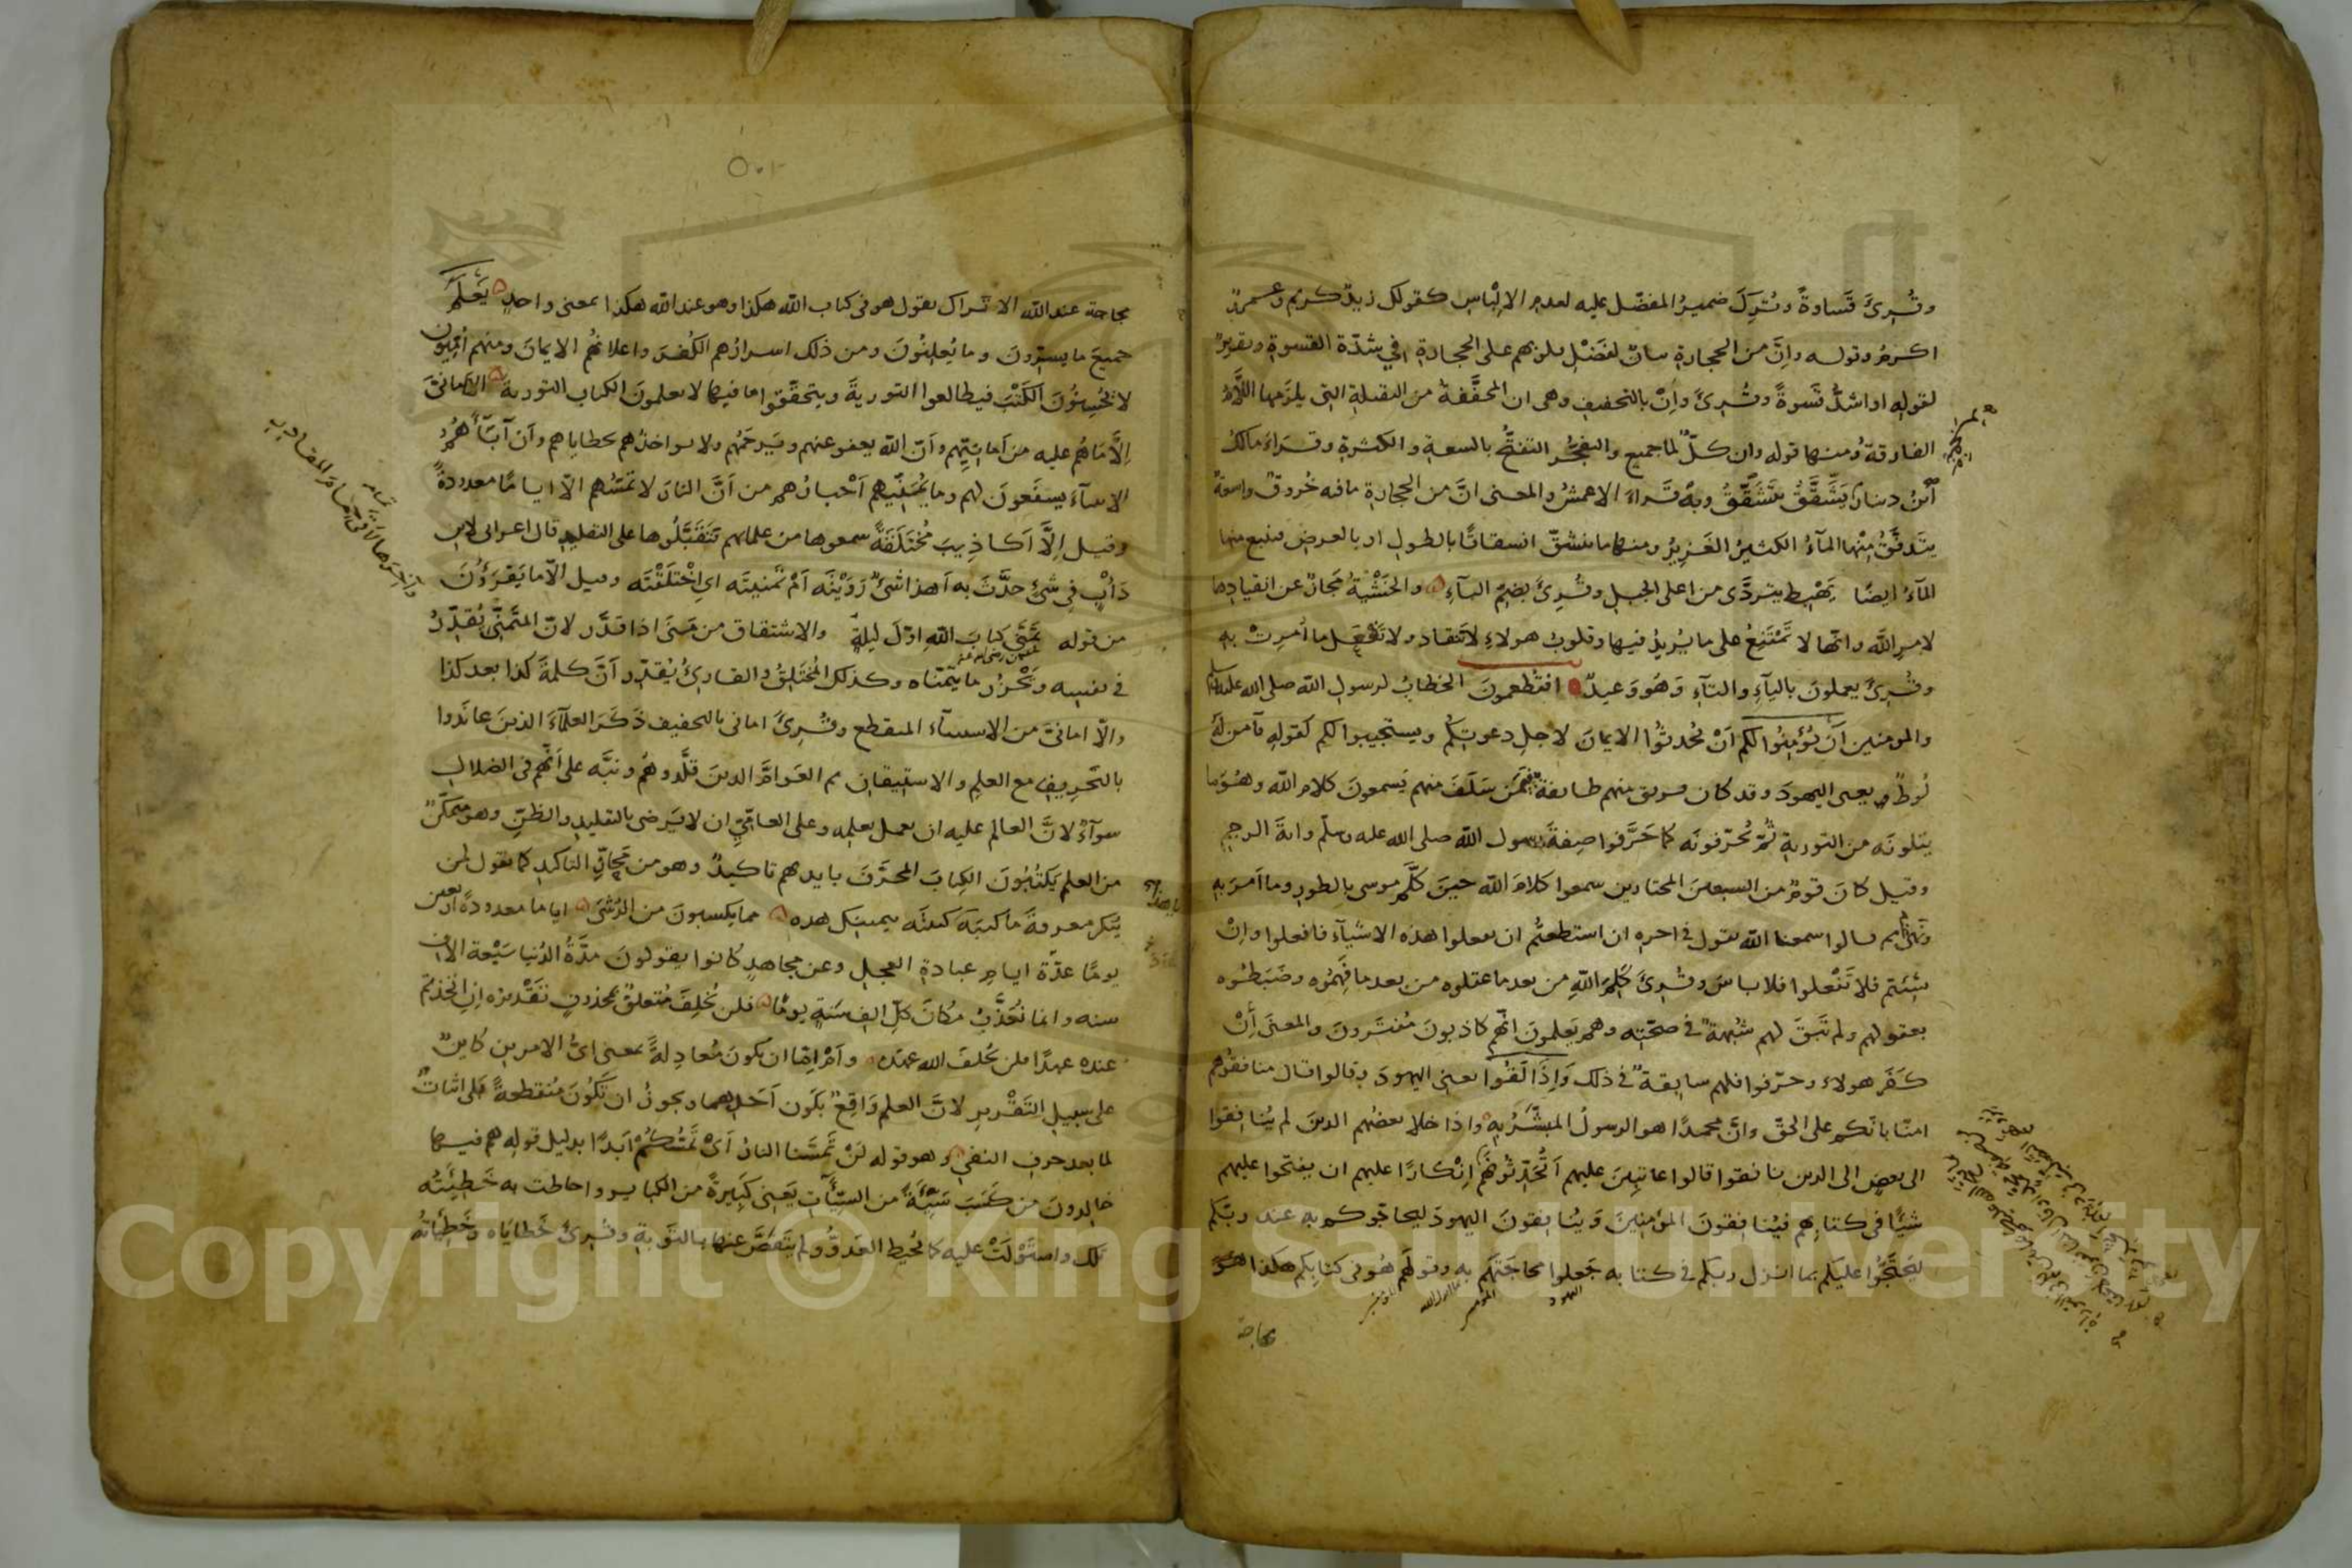 وقُرِئَ قَسَاوةً وتُرِكَ ضميرُ المفضّل عليه لعدم الالباس كقولك زيدٌ كريم وعمرٌو
اكرمُ وقوله وانَّ من الحجارة بيان لفَضْلِ قلوبهم على الحجارة في شدّة القسوة وتقريرٌ
لقوله او اشدُّ قسوةً وقُرِئَ وانْ بالتخفيف وهى ان المخفَّفة من الثقيلة التى يلزمها اللّامُ
الفارقةُ ومنها قوله وان كلّ لما جميع والتفجُّر التفتحُّ بالسعة والكثرة وقراءَ مالكُ
ابنُ دينارٍ يَشَّقَّقُ يتشَقّقُ وبه قَراءَ الاعمشُ والمعنى انَّ من الحجارة ما فيه خُروقٌ واسعةٌ
يتدفَّقُ مِنْها المآءُ الكثيرُ الغَزِيرُ ومنها ما ينشقّ انشقاقًا بالطول او بالعرض فينبع منها
المآءُ ايضًا يَهْبِط يتردَّى من اعلى الجبل وقُرِئَ بضمّ البآءِ والخَشْيَةُ مَجازٌ عن انقيادها
لامرِ اللّه وانّها لا تَمْتَنِعُ على ما يُريدُ فيها وقلوبُ هولاءِ لا تنقاد ولا تَفْعَل ما اُمِرتْ به
وقُرِئَ يعملونَ باليآءِ والتآءِ وَهُوَ وَعيدٌ افتَطْمعونَ الخطابُ لرسولِ اللّه صلى الله عليه وسلم
والمومنين اَن يُؤْمِنُوا لكم اَنْ يُحدثُوا الايمانَ لاجلِ دعوتكم ويستجيبوا لكم كقولهِ فآمن لَهُ
لُوطٌ يعنى اليهودَ وقد كان فريق منهم طايفة فيمَن سَلَفَ منهم يَسمعونَ كلام اللّه وهُوَ ما
يتلونَه من التوريةِ ثُمّ يُحرّفونَه كما حَرَّفوا صِفةَ رسول اللّه صلى الله عليه وسلّم وايةَ الرجم
وقيل كانَ قومٌ من السبعينَ المختارين سمعوا كلامَ اللّه حينَ كلَّم موسى بالطور وما اَمَرَ بهِ
ونهى ثم قالوا سمعنا اللّه يقول فى اخره ان استطعتُم ان تفعلوا هذه الاشيآء فافعلوا وانْ
شئتم فلا تفْعلوا فلا باسَ وقُرِئَ كَلِمَ اللّهِ من بعد ما عقلوه من بعد ما فَهِمُوه وضَبَطُوه
بعقولهم ولم تَبقَ لهم شُبْهةٌ فى صحّتِه وهم يَعلمونَ انّهم كاذبونَ مُفتَرونَ والمعنَى اِنْ
كَفَر هولاء وحرّفوا فلهم سابقةٌ فى ذلك وَاِذَا لَقُوا يعنى اليهودَ قالوا قال منافقُوهم
امنّا بانّكم على الحقّ وانَّ محمدًا هو الرسولُ المبشَّرُ به واذا خلا بعضُهم الذينَ لم يُنافِقوا
الى بعضٍ الى الذين نافقوا قالوا عاتبِينَ عليهم اَتُحَدِّثونَهُم اِنْكارًا عليهم ان يفتحوا عليهم
شيئًا فى كتابِهم فيُنافِقونَ المؤمنِينَ وَيُنافِقونَ اليهودَ ليحاجّوكم به عند ربّكم
ليَحتَجُّوا عليكم بما انزل ربكم فى كتابه جَعلوا محاجّتَهم به وقولَهم هُو فى كتابِكم هكذا
محاجة
محاجة عند اللّه الا تَراك تقول هو فى كتاب اللّه هكذا وهو عند اللّه هكذا بمعنى واحدٍ يَعْلَمُ
جميعَ ما يسِرّونَ وما يُعلِنُونَ ومن ذلك اسرارُهم الكُفرَ واعلانُهُم الايمانَ ومنهم اُمّيّون
لا يُحسِنُونَ الكَتْبَ فيطالعوا التوريةَ ويتحقّقوا ما فيها لا يعلمونَ الكتاب التورية الا امانىَ
اِلَّا ماهُم عليه من اَمانِيِّهم وانّ اللّه يعفو عنهم ويَرحَمُهم ولا يواخذُهم بخطاياهم وانّ آبآءَهُم
الانبيآءَ يشفَعونَ لهم وما يُمنّيهم اَحْبارُهم من اَنَّ النارَ لا تمَسُّهم الّا ايامًا معدودةً
وقيل اِلَّا اكاذيبَ مُخْتَلَقةً سمعوها من علمائهم فتَقَبَّلُوها على التقليدِ قال اعرابى لابن
دَأبٍ فى شئٍ حدَّثَ به اَهذا شئٌ رَوَيْتَه اَمْ تمنيتَه اى اِخْتلَقْتَه وقيل الّا ما يَقرؤُنَ
من قوله تمَنَّى كتابَ اللّهِ اوّلَ ليلةٍ والاشتقاق من مَنَى اذا قدَّر لانّ المتَمنّىَ يُقدِّرُ
فى نفسِه ويَحْزرُ ما يتمنّاه وكذلك المُختلِقُ والقارئُ يُقدِّر اَنَّ كلمةَ كذا بعد كذا
والّا امانىَ من الاستثنآء المنقطع وقُرِئَ امانى بالتخفيف ذَكَر العلمآءَ الذينَ عانَدوا
بالتَحرِيفِ مع العلمِ والاستيقانِ ثم العَوامَّ الذينَ قلَّدوهُم ونبَّه على اَنّهم فى الضلال
سوآءٌ لانَّ العالم عليه ان يعمل بعلمِه وعلى العامِّىِّ ان لا يَرضى بالتقليدِ والظنِّ وهو متمكّنٌ
من العلم يَكتُبُونَ الكِتابَ المحرَّفَ بايديهم تاكيدٌ وهو من مَجازِ التاكيدِ كما تقول لمن
يُنكر معرفةَ ما كتبَه كتبتَه بيمينكَ هذه مما يكسبونَ من الرُشَى اياما معدودةً اربعين
يومًا عدّةَ ايامِ عبادةِ العجلِ وعن مجاهدٍ كانوا يقولونَ مدّةُ الدُنيا سَبْعة الاف
سنه وانما نُعَذَّبُ مكانَ كلِّ الفِ سَنةٍ يومًا فلن يُخلِفَ مُتعلقٌ بمحذوفٍ تَقْديرُه اِنِ اتخذتم
عنده عهدًا فلن يُخلفَ اللّه عهدَه وآمْ اِمّا ان تكونَ مُعادِلةً بمعنى اىُّ الامرين كاينٌ
على سبيلِ التَقْرير لانَّ العلم وَاقِعٌ بكون اَحَدِهما ويجوزُ ان تَكُونَ مُنقطعةً بَلى اثباتٌ
لما بعد حرفِ النفىِ وهو قوله لَنْ تمَسَّنا النارُ اَىْ تَمَسُّكُمْ اَبدًا بدليل قوله هم فيها
خالِدونَ من كَسَبَ سَيِّئةً من السيّئآتِ يَعنى كَبِيرةً من الكباير واحاطت به خَطِيئَتُه
تلك واستَوْلَتْ عليه كما يُحيط العَدوُّ ولم يتَفَصَّ عنها بالتَوبةِ وقُرِئَ خَطاياه وخَطِيئاتُه